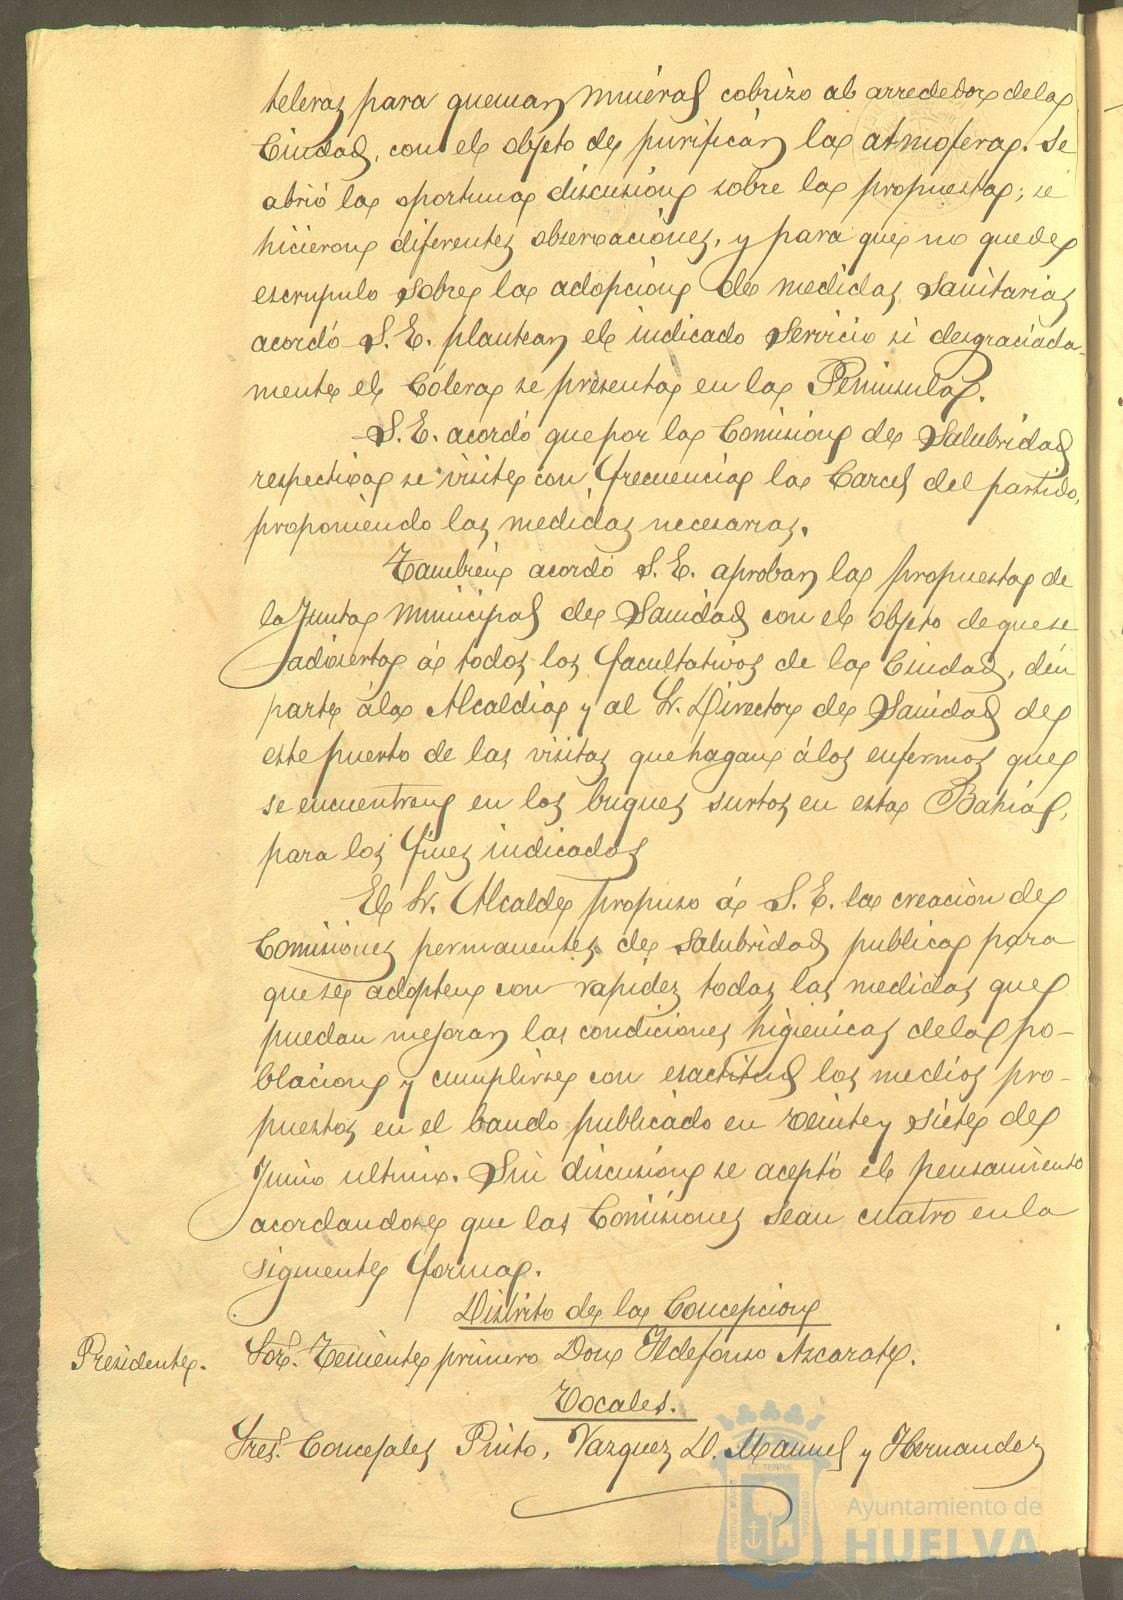 teleras para quemar mineral cobrizo al arrededor de la
Ciudad, con el objeto de purificar la atmofera. Se
abrió la oportuna discusion sobre la propuesta; se
hicieron diferentes observaciones, y para que no quede
escrupulo sobre la adopcion de medidas Sanitarias
acordó S.E. plantear el indicado Servicio si desgraciada-
mente el Cólera se presenta en la Peninsula.
S.E. acordó que por la Comision de Salubridad
respectiva se visite con frecuencia la Carcel del partido,
proponiendo las medidas necesarias.
Tambien acordó S.E. aprobar la propuesta de
la Junta Municipal de Sanidad con el objeto de que se
advierta á todos los facultativos de la Ciudad, dén
parte á la Alcaldia y al Sr. Director de Sanidad de
este puerto de las visitas que hagan á los enfermos que
se encuentren en los buques surtos en esta Bahia,
para los fines indicados
El Sr. Alcalde propuso á S.E. la creación de
Comisiones permanentes de Salubridad publica para
que se adopten con rapidez todas las medidas que
puedan mejorar las condiciones higienicas de la po-
blacion y cumplirse con esactitud los medios pro-
puestos en el bando publicado en veinte y siete de
Junio ultimo. Sin discusion se aceptó el pensamiento
acordandose que las Comisiones sean cuatro en la
siguiente forma.
Distrito de la Concepcion
Presidente. Sor. Teniente primero Don Ildefonso Azcarate.
Vocales.
Sres. Concejales Pinto, Vazquez D. Manuel y Hernandez
PORTUS MARIS ET TERRÆ CUSTODIA
Ayuntamiento de
HUELVA